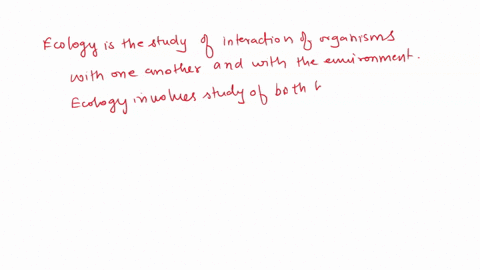 Ecology is the study of interaction of organisms
with one another and with the environment.
Ecology involves study of both